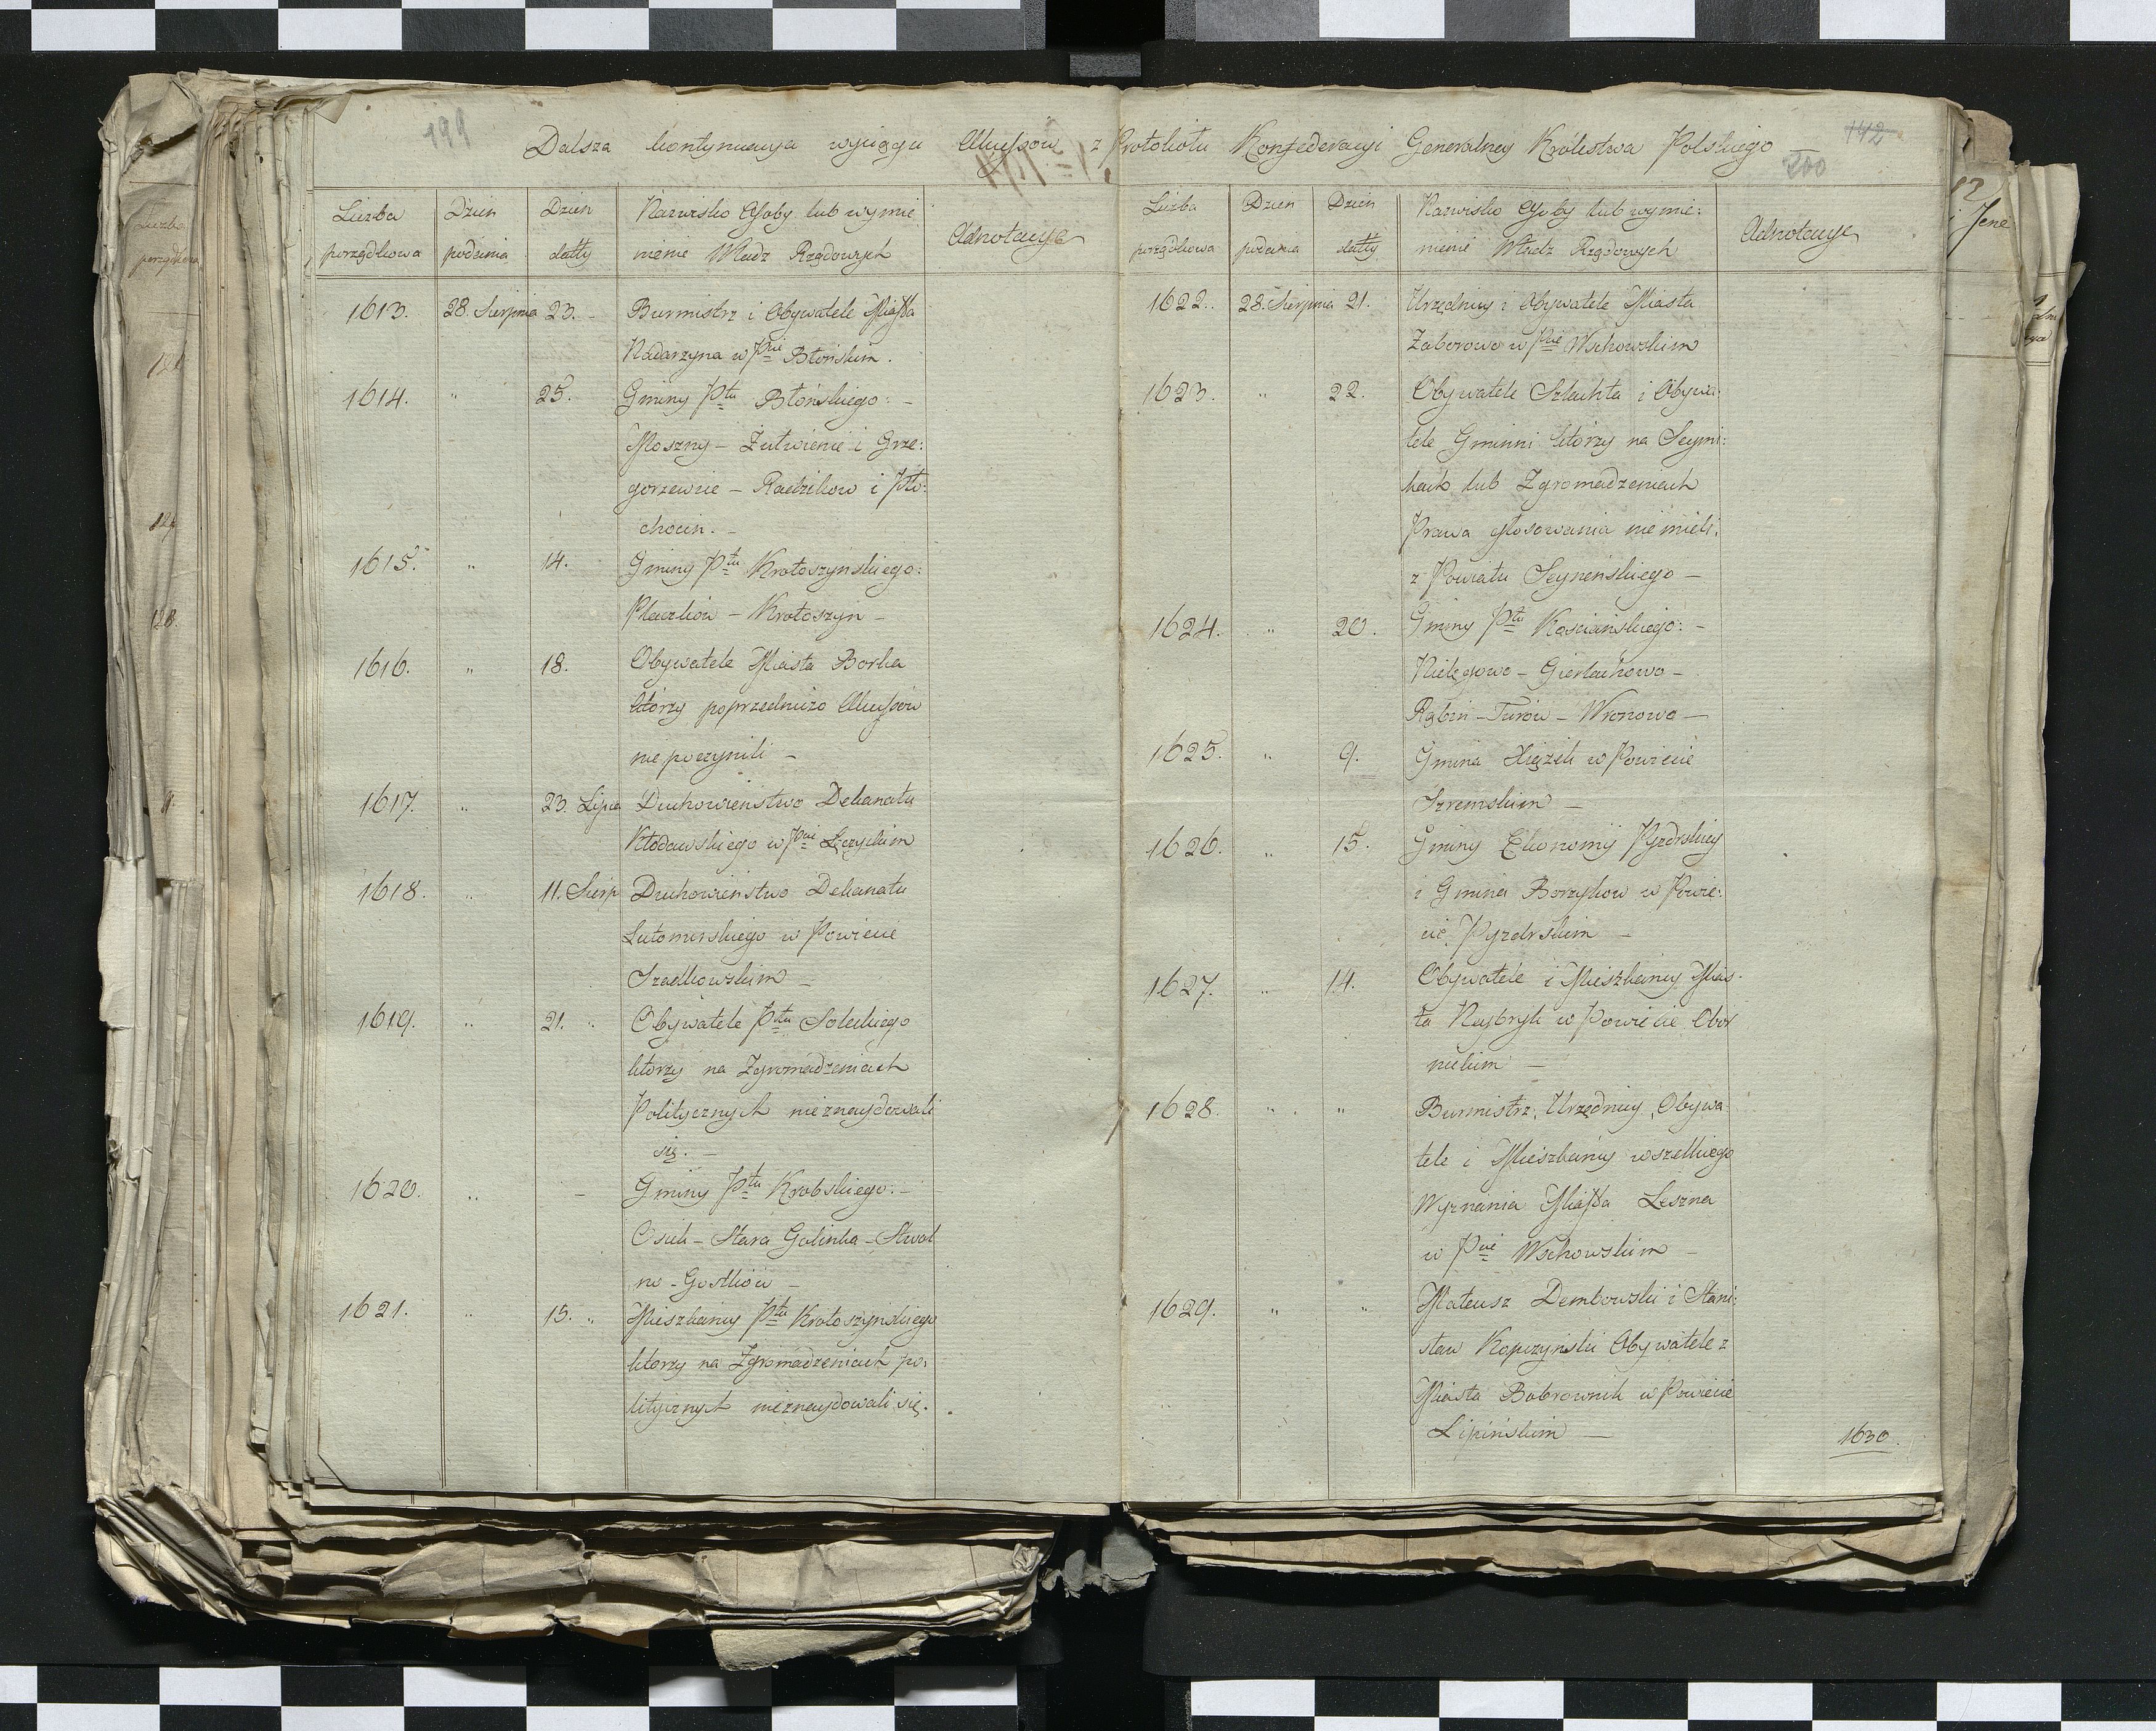 199
Dalsza kontynuacya wyciągu Akcessów z Protokołu Konfederacyi Generalney Królestwa Polskiego
142
200
Liczba porządkowa
Dzień podania
Dzień datty
Nazwisko Osoby lub wymie
nienie Władz Rządowych
Adnotacye
1613. 28. Sierpnia 23. – Burmistrz i Obywatele Miasta
Nadarzyna w Pcie Błońskim.
1614. " 25. Gminy Ptu Błońskiego: –
Moszny – Żutwienie i Grze:
gorzewie – Radzików i Pło:
chocin. –
1615. " 14. Gminy Ptu Krotoszynskiego:
Placzków – Krotoszyn –
1616. " 18. Obywatele Miasta Borka
którzy poprzedniczo Akcessów
nie poczynili –
1617. " 23. Lipca Duchowieństwo Dekanatu
Kłodawskiego w Pcie Łęczyckim
1618. " 11. Sierp Duchowieństwo Dekanatu
Lutomirskiego w Powiecie
Szadkowskim –
1619. " 21. " Obywatele Ptu Soleckiego
którzy na Zgromadzeniach
Politycznych nieznaydowali
się. –
1620. " – Gminy Ptu Krobskiego: –
Osiek – Stara Golinka – Stwol
no – Gostków –
1621. " 15. " Mieszkańcy Ptu Krotoszynskiego
którzy na Zgromadzeniach po,
litycznych nieznaydowali się.
Liczba porządkowa
Dzień podania
Dzień datty
Nazwisko Osoby lub wymie:
nienie Władz Rządowych
Adnotacye
1622. 28. Sierpnia 21. Urzędnicy i Obywatele Miasta
Zaborowo w Pcie Wschowskim
1623. " 22. Obywatele Szlachta i Obywa:
tele Gminni którzy na Seymi:
kach lub Zgromadzeniach
Prawa głosowania nie mieli.
z Powiatu Seyneńskiego –
1624. " 20. Gminy Ptu Kościańskiego: –
Nielęgowo – Gierłachowo –
Rąbin – Turów – Wronowo –
1625. " 9. Gmina Xiężek w Powiecie
Szremskim –
1626. " 15. Gminy Ekonomij Pyzdrskiey
i Gmina Borzykow w Powie:
cie Pyzdrskim –
1627. " 14. Obywatele i Mieszkańcy Mias.
ta Naybryk w Powiecie Obor
nickim –
1628. " " Burmistrz, Urzędnicy, Obywa
tele i Mieszkańcy wszelkiego
Wyznania Miasta Leszna
w Pcie Wschowskim –
1629. " " Mateusz Dembowski i Stani:
sław Kopczynski Obywatele z
Miasta Bobrownik w Powiecie
Lipińskim –
1630.